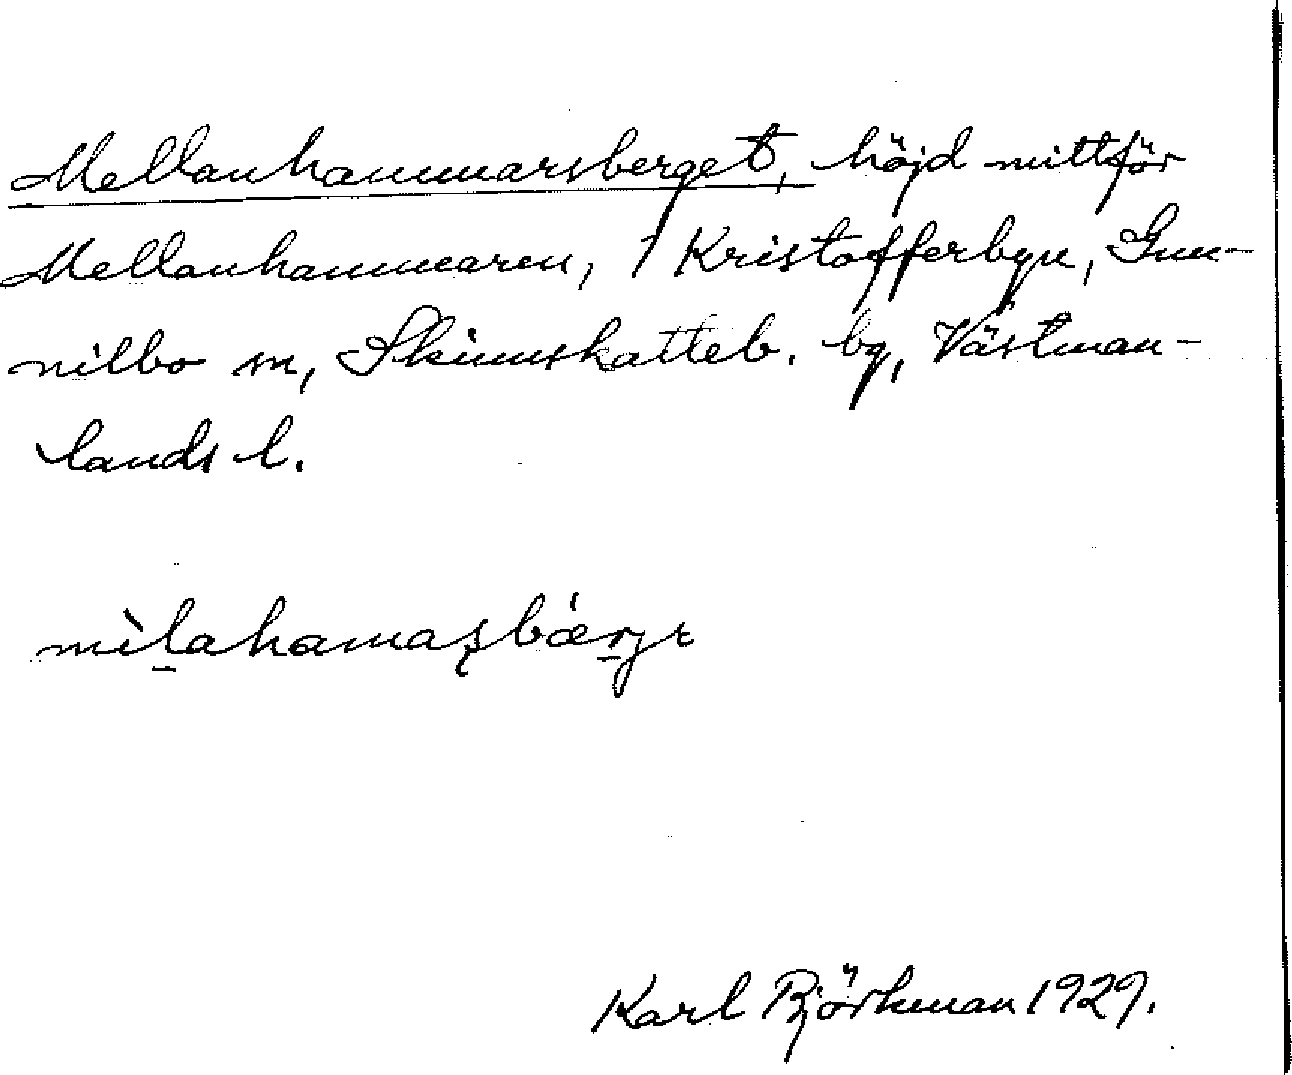 Mellanhammarsberget, höjd mittför
Mellanhammaren, i Kristofferbyn, Gun-
nilbo sn, Skinnskatteb. bg, Västman-
lands l.
mìlahamaʂbǽrjε
Karl Björkman 1929.